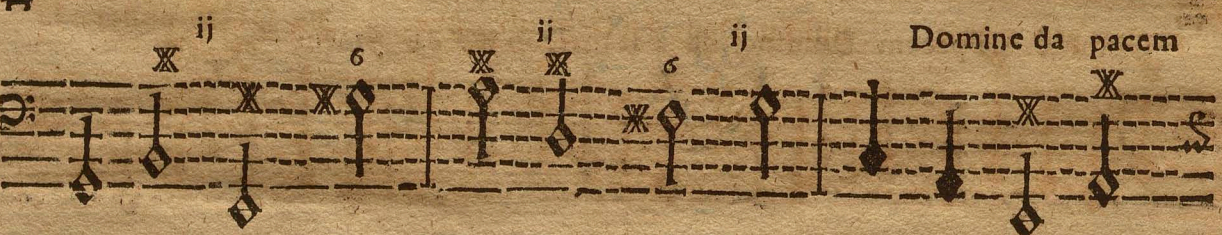 ij ij ij Domine da pacem
6 6